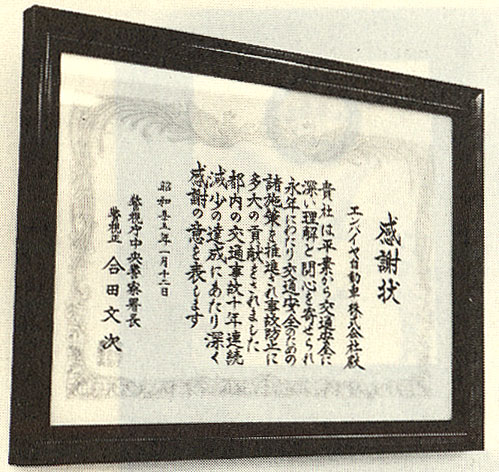 感謝状
エンパイヤ自動車株式会社殿
貴社は平素から交通安全に
深い理解と関心を寄せられ
永年にわたり交通安全のための
諸施策を推進され事故防止に
多大の貢献をされました
都内の交通事故十年連続
減少の達成にあたり深く
感謝の意を表します
昭和五五年一月十二日
警視庁中央警察署長
警視正 合田文次